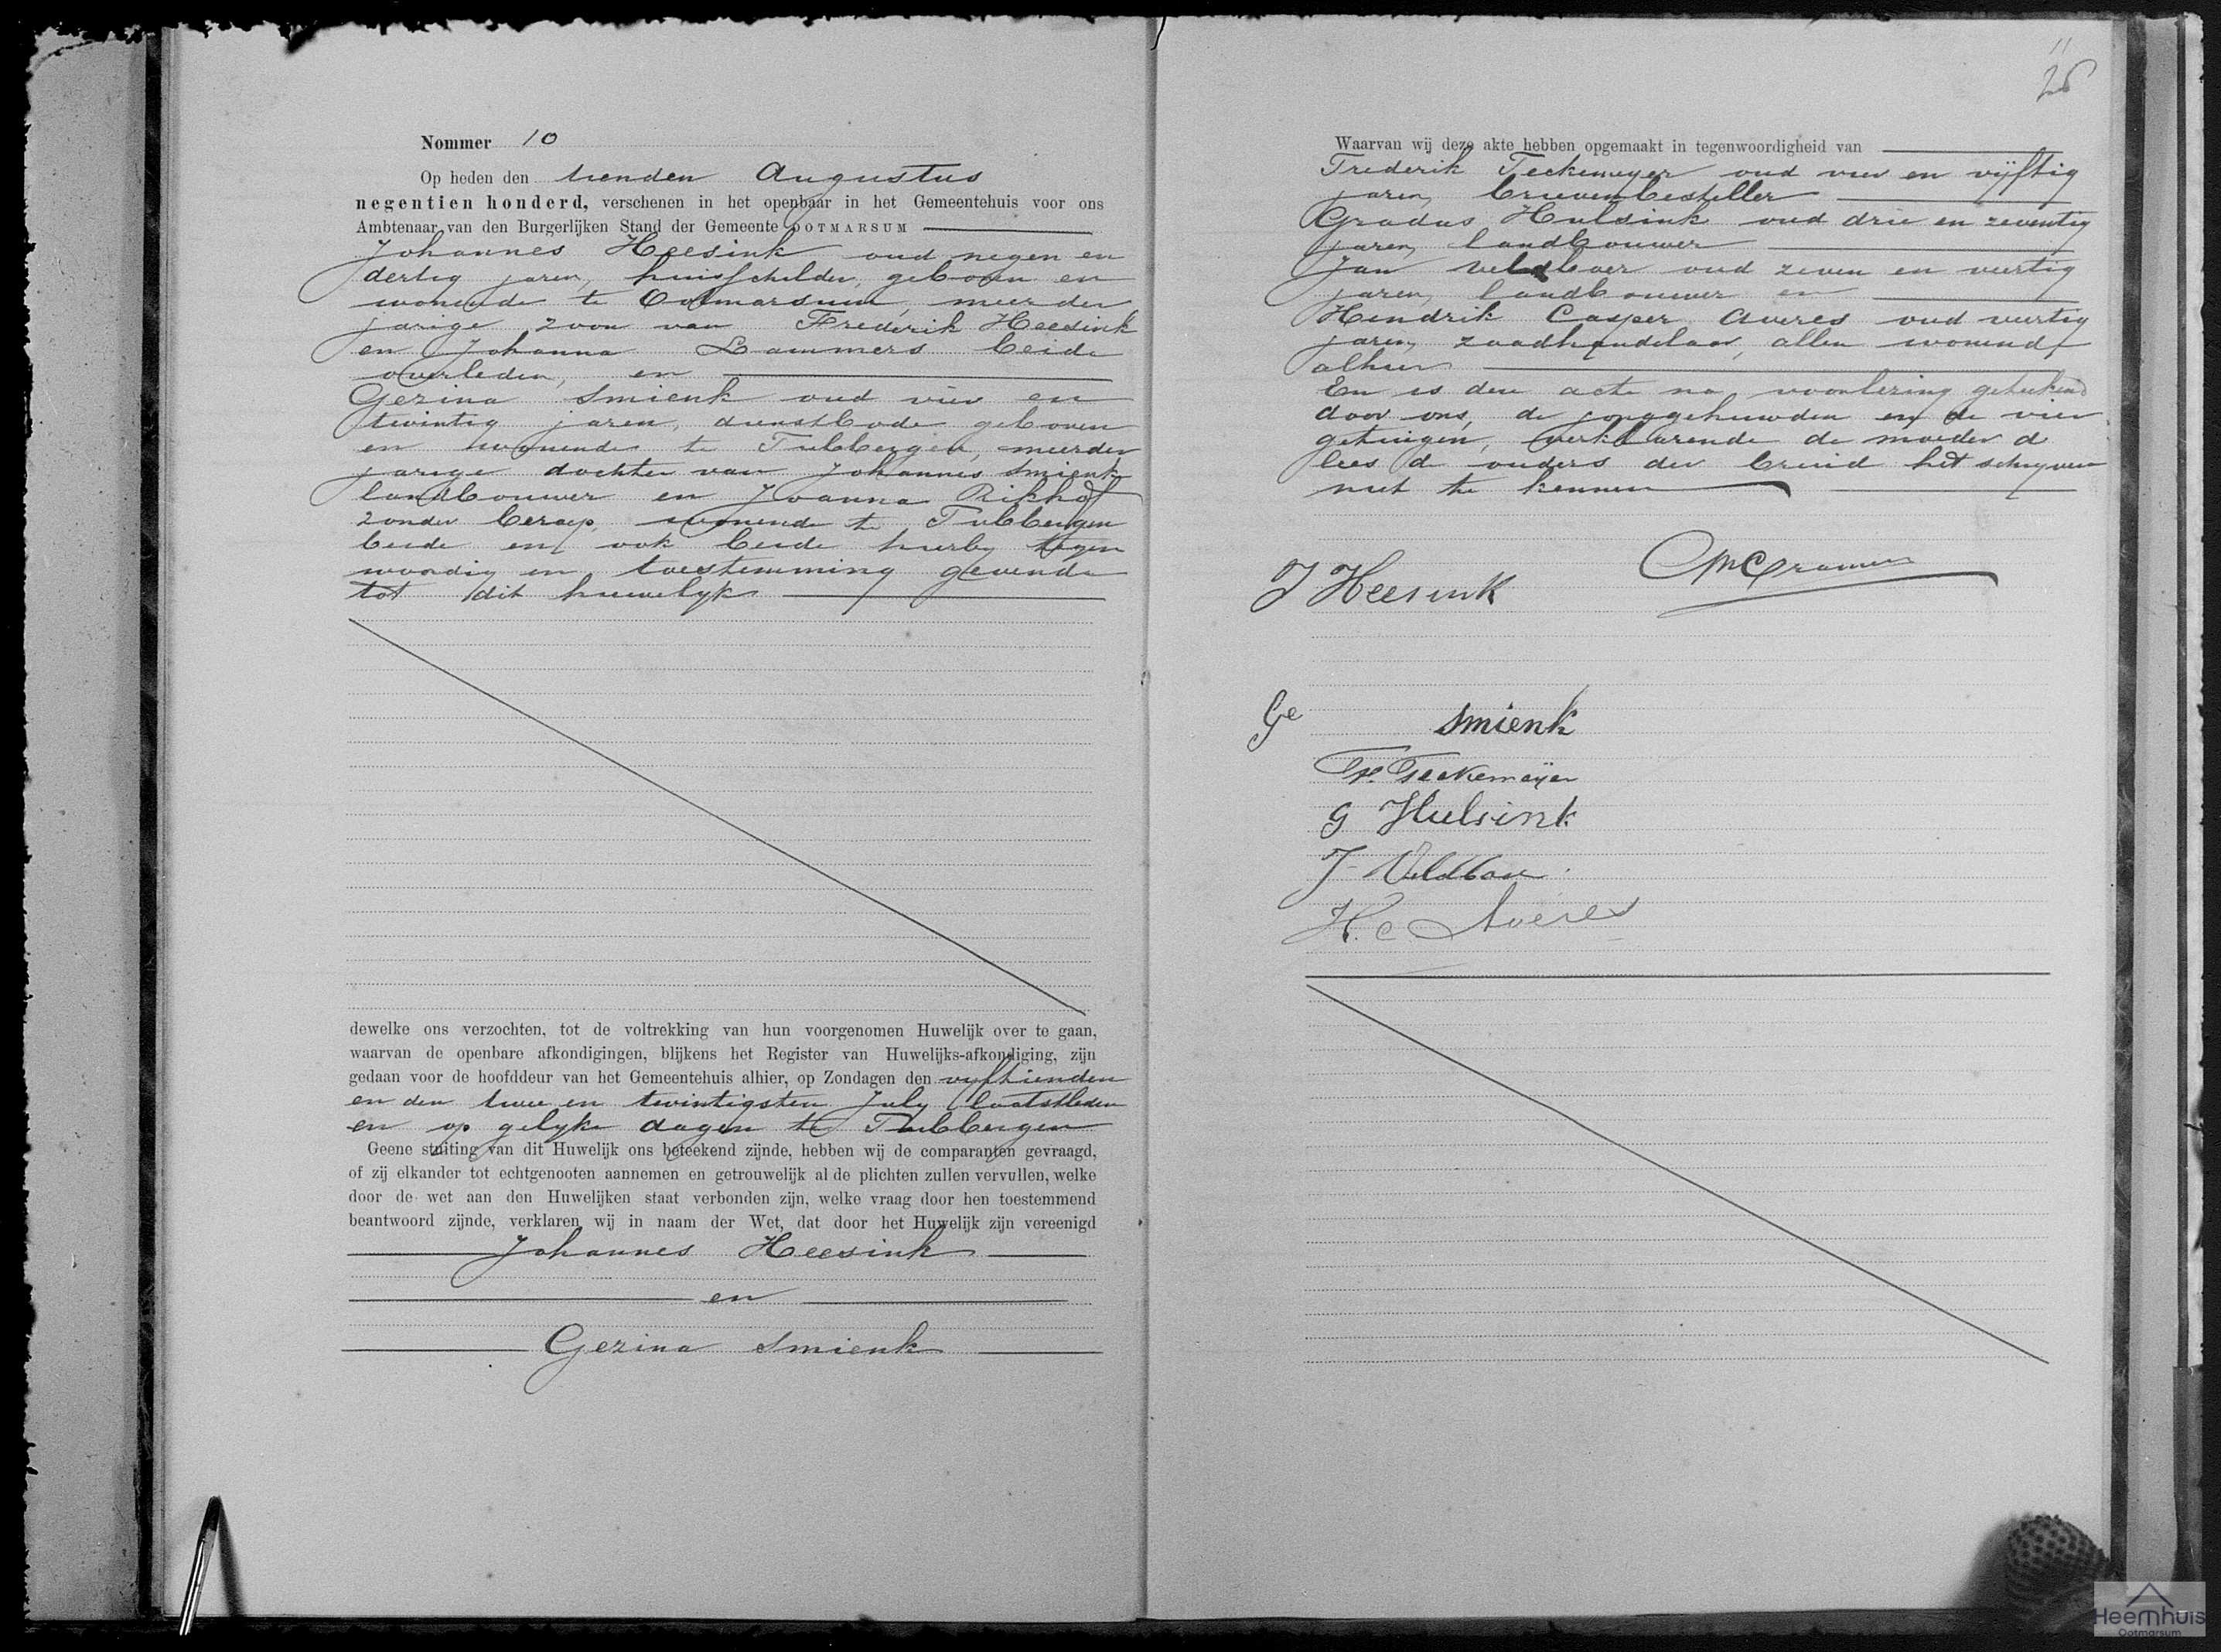 Nommer 10
Op heden den tienden Augustus
negentien honderd, verschenen in het openbaar in het Gemeentehuis voor ons
Ambtenaar van den Burgerlijken Stand der Gemeente OOTMARSUM
Johannes Heesink oud negen en
dertig jaren, huisschilder, geboren en
wonende te Ootmarsum, meerder
jarige zoon van Frederik Heesink
en Johanna Lammers beide
overleden, en
Gezina Smienk oud vier en
twintig jaren, dienstbode geboren
en wonende te Tubbergen, meerder
jarige dochter van Johannes Smienk
landbouwer en Joanna Rikhof
zonder beroep, wonende te Tubbergen
beide en ook beide hierby tegen
woordig en toestemming gevende
tot dit huwelyk
dewelke ons verzochten, tot de voltrekking van hun voorgenomen Huwelijk over te gaan,
waarvan de openbare afkondigingen, blijkens het Register van Huwelijks-afkondiging, zijn
gedaan voor de hoofddeur van het Gemeentehuis alhier, op Zondagen den vyftienden
en den twee en twintigsten July laatstleden
en op gelyke dagen te Tubbergen
Geene stuiting van dit Huwelijk ons beteekend zijnde, hebben wij de comparanten gevraagd,
of zij elkander tot echtgenooten aannemen en getrouwelijk al de plichten zullen vervullen, welke
door de wet aan den Huwelijken staat verbonden zijn, welke vraag door hen toestemmend
beantwoord zijnde, verklaren wij in naam der Wet, dat door het Huwelijk zijn vereenigd
Johannes Heesink
en
Gezina Smienk
11
Waarvan wij deze akte hebben opgemaakt in tegenwoordigheid van
Frederik Teckemeyer oud vier en vijftig
jaren, brievenbesteller
Gradus Hulsink oud drie en zeventig
jaren, landbouwer
Jan Veldboer oud zeven en veertig
jaren, landbouwer en
Hendrik Casper Averes oud veertig
jaren, zaadhandelaar, allen wonende
alhier
En is deze acte na voorlezing geteekend
door ons, de jonggehuwden en de vier
getuigen, verklarende de moeder d
lees de ouders der bruid het schryven
niet te kennen
J Heesink
Cramer
Ge Smienk
Fr. Teckemeijer
G Hulsink
J Veldboer
H. C Averes
Heemhuis
Ootmarsum